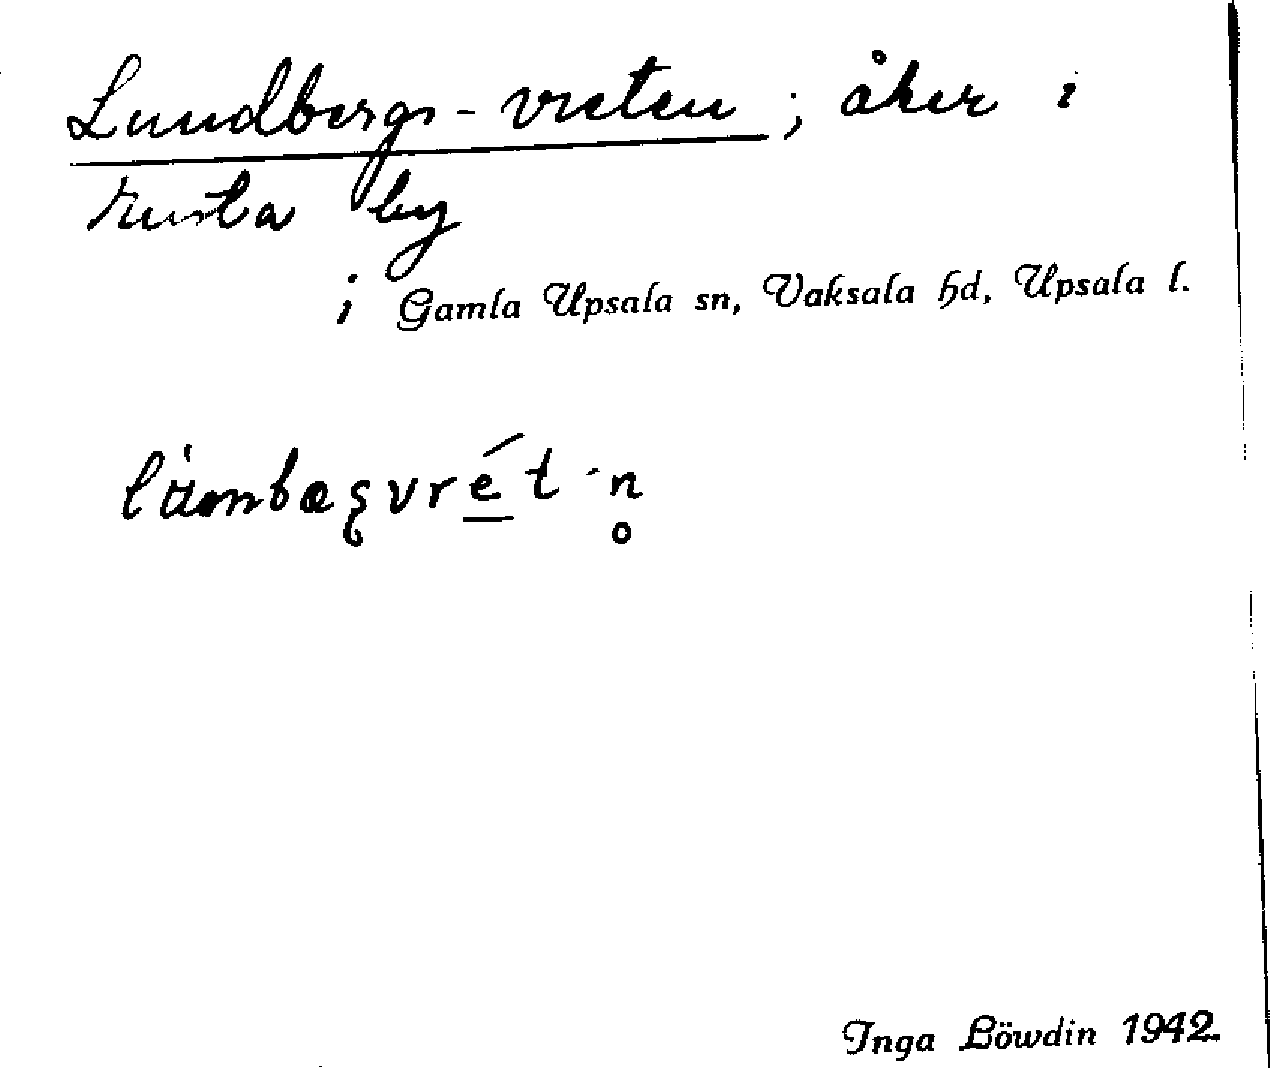 Lundbergs-vreten; åker i
by
i Gamla Upsala sn, Vaksala hd, Upsala l.
Inga Löwdin 1942.